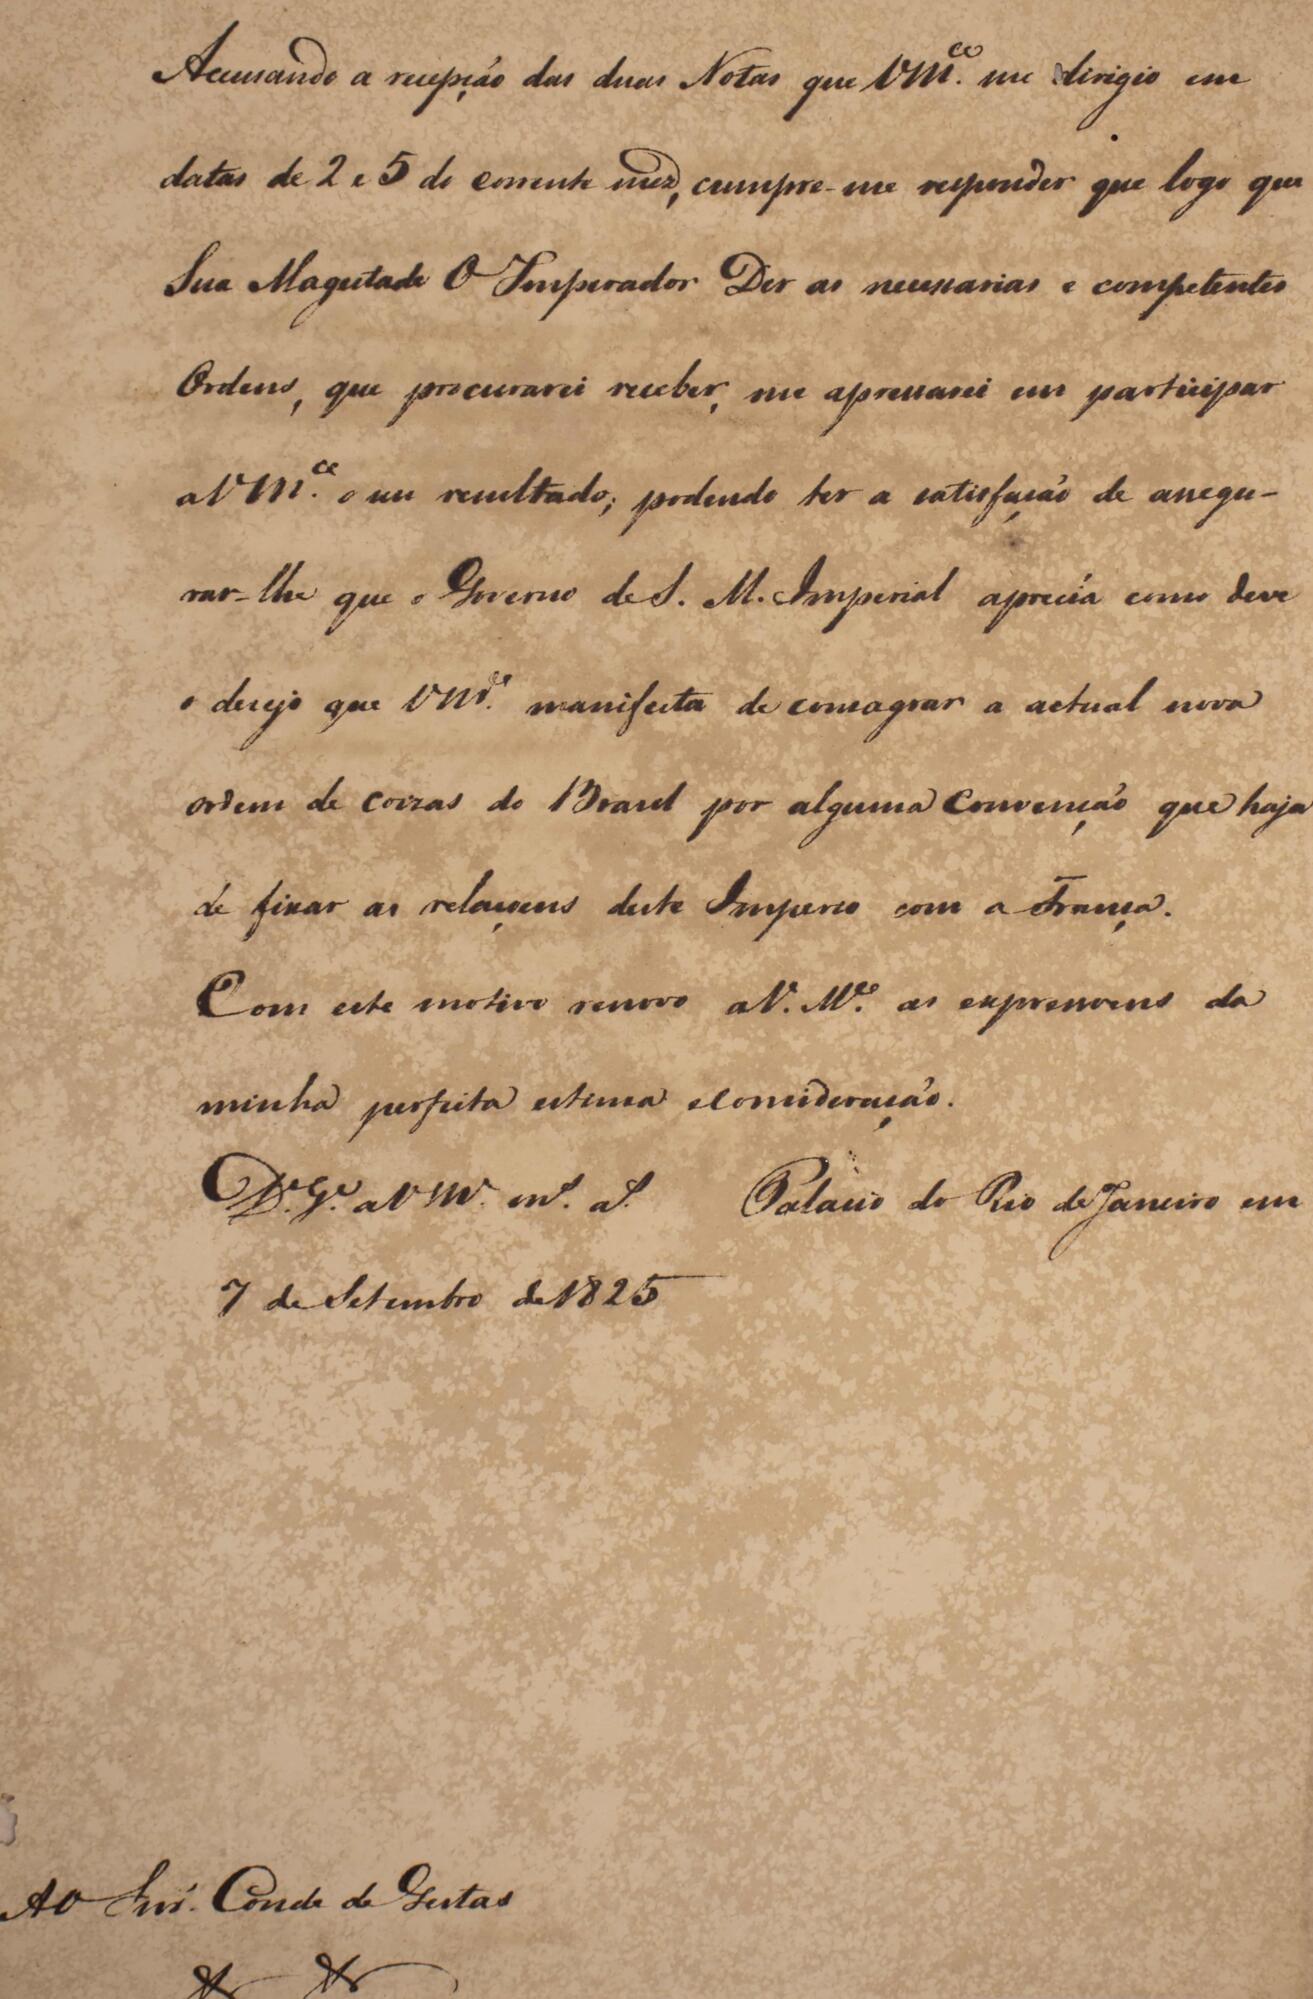 Accusando a recepção das duas Notas que VM.ce me dirigio em
datas de 2 e 5 do corrente mez, cumpre-me responder que logo que
Sua Magestade O Imperador Der as necessarias e competentes
Ordens, que procurarei receber, me apressarei em participar
a VM.ce o seu resultado; podendo ter a satisfação de assegu-
rar-lhe que o Governo de S. M. Imperial aprecia como deve
o desejo que VM.ce manifesta de consagrar a actual nova
ordem de coizas do Brasil por alguma Convenção que haja
de fixar as relaçoens deste Imperio com a França.
Com este motivo renovo a V. M.ce as expressoens da
minha perfeita estima e Consideração.
D.s G.e a VM.ce m.s a.s Palacio do Rio de Janeiro em
7 de Setembro de 1825
Ao Snr. Conde de Gestas